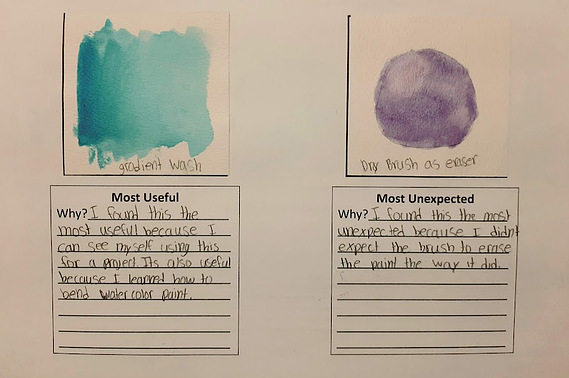 gradient wash
Dry Brush as eraser
Most Useful
Why? I found this the
most useful because I
can see myself using this
for a project. Its also useful
because I learned how to
bend water color paint.
Most Unexpected
Why? I found this the most
unexpected because I didn't
expect the brush to erase
the paint the way it did.